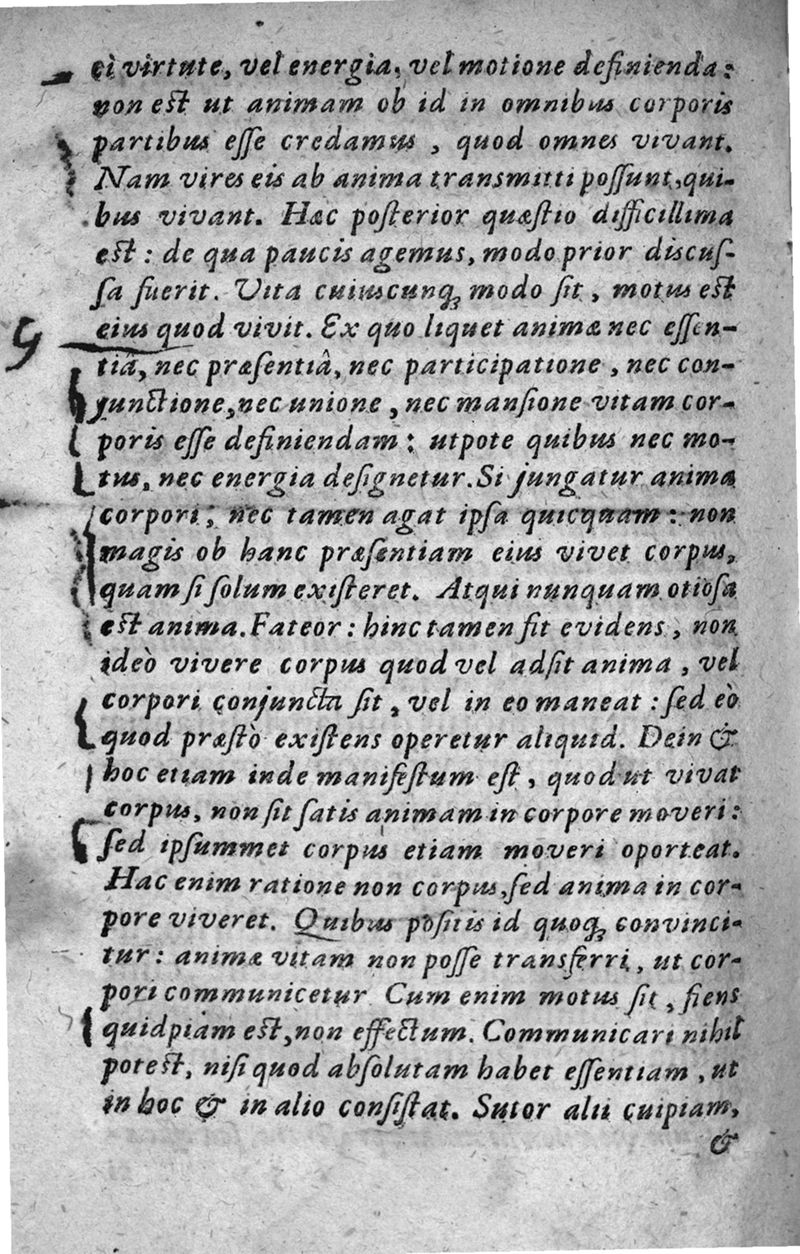 ei virtute, vel energia, vel motione definienda:
non est ut animam ob id in omnibus corporis
partibus esse credamus, quod omnes vivant.
Nam vires eis ab anima transmitti possunt, qui-
bus vivant. Hæc posterior quæstio difficillima
est: de qua paucis agemus, modo prior discus-
sa fuerit. Vita cuiuscunq; modo sit, motus est
eius quod vivit. Ex quo liquet animæ nec essen-
tiâ, nec præsentiâ, nec participatione, nec con-
junctione, nec unione, nec mansione vitam cor-
poris esse definiendam: utpote quibus nec mo-
tus, nec energia designetur. Si jungatur anima
corpori, nec tamen agat ipsa quicquam: non
magis ob hanc præsentiam eius vivet corpus,
quam si solum existeret. Atqui nunquam otiosa
est anima. Fateor: hinc tamen fit evidens, non
ideò vivere corpus quod vel adsit anima, vel
corpori conjuncta sit, vel in eo maneat: sed eò
quod præstò existens operetur aliquid. Dein &
hoc etiam inde manifestum est, quod ut vivat
corpus, non sit satis animam in corpore moveri:
sed ipsummet corpus etiam moveri oporteat.
Hac enim ratione non corpus, sed anima in cor-
pore viveret. Quibus positis id quoq; convinci-
tur: animæ vitam non posse transferri, ut cor-
pori communicetur. Cum enim motus sit, fiens
quidpiam est, non effectum. Communicari nihil
potest, nisi quod absolutam habet essentiam, ut
in hoc & in alio consistat. Sutor alii cuipiam,
&
9